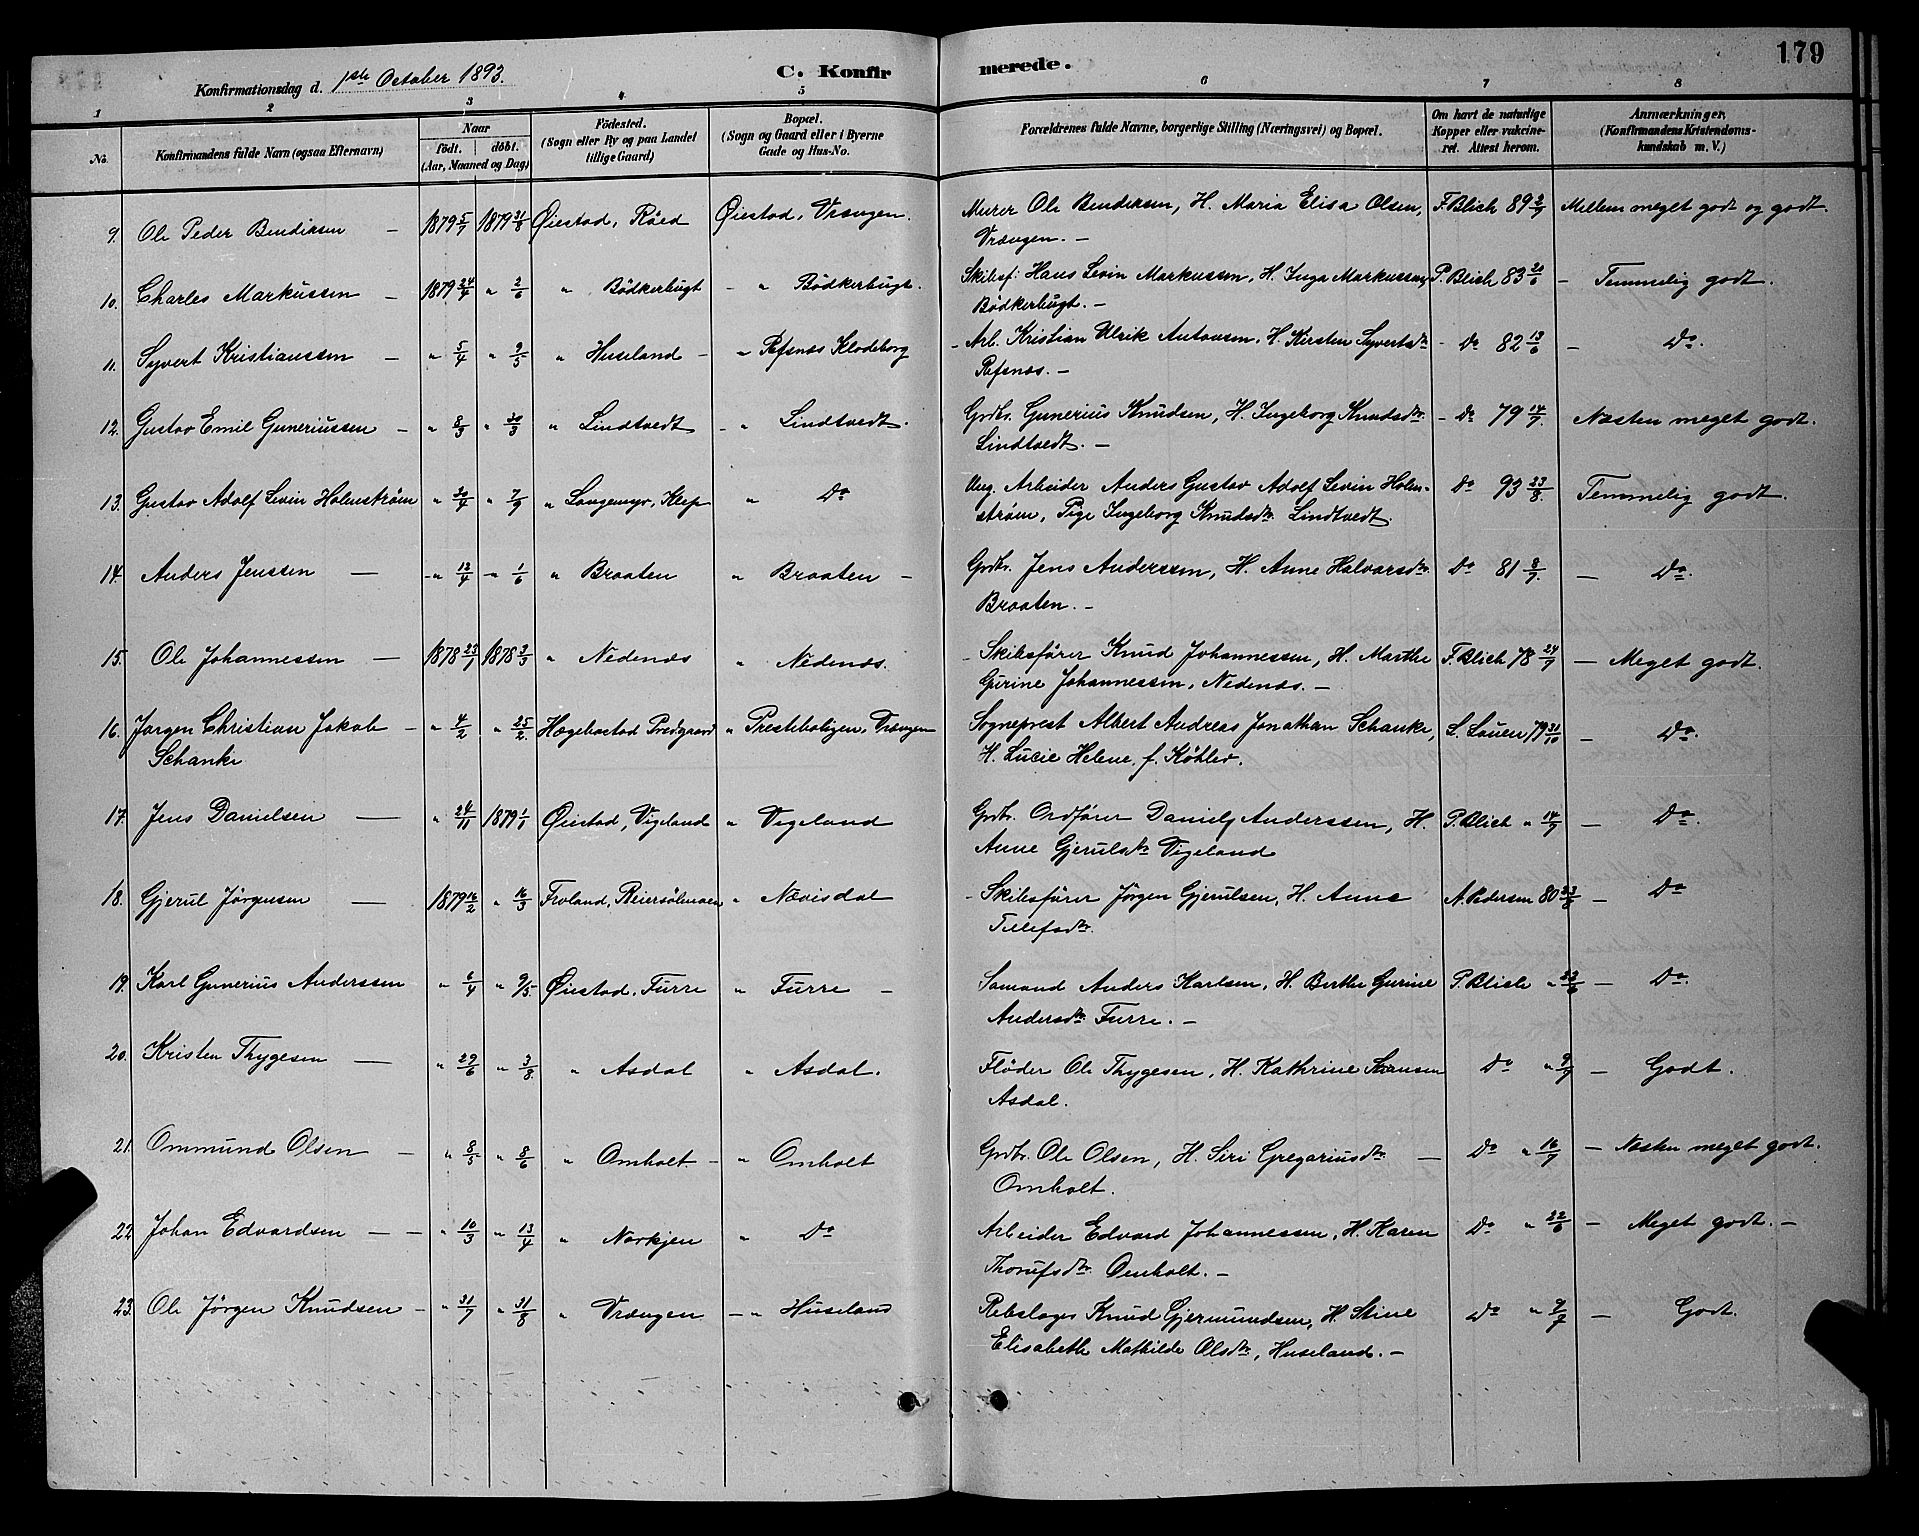 179
Konfirmationsdag d. 1ste October 1893. C. Konfirmerede.
1 2 3 4 5 6 7 8
No. Konfirmandens fulde Navn (ogsaa Efternavn) Naar födt. döbt. (Aar, Maaned og Dag) Födested. (Sogn eller By og paa Landet tillige Gaard) Bopæl. (Sogn og Gaard eller i Byerne Gade og Hus-No. Forældrenes fulde Navne, borgerlige Stilling (Næringsvei) og Bopæl. Om havt de naturlige Kopper eller vakcineret. Attest herom. Anmærkninger, (Konfirmandens Kristendomskundskab m. V.)
9. Ole Peder Bendiksen – 1879 5/7 1879 31/8 Øiestad, Röed Øiestad, Vrængen. Murer Ole Bendiksen, H. Maria Elisa Olsen, F. Blich 89 2/9 Mellem meget godt og godt.
Vrængen. –
10. Charles Markussen – 1879 24/4 " 2/6 " Bödkerbugt – " Bödkerbugt. Skibsf: Hans Levin Markussen, H. Inga Markussen, P. Blich 83 20/6 – Temmelig godt.
Bödkerbugt. –
11. Syvert Kristianssen – " 5/4 " 2/5 " Huseland – " Refsnæs Klodeborg – Arb. Kristian Ulrik Antonsen, H. Kirsten Syvertsdtr – Do 82 13/6 – Do.
Refsnæs. –
12. Gustav Emil Guneriussen – " 8/3 " 30/3 " Lindtvedt – " Lindtvedt. Grdbr. Gunerius Knudsen, H. Ingeborg Knudsdtr – Do 79 14/7. Næsten meget godt.
Lindtvedt. –
13. Gustav Adolf Levin Holmström " 30/4 " 7/9 " Longemyr, Klep " Do Ung. Arbeider Anders Gustav Adolf Levin Holm- Do 93 23/8 Temmelig godt.
ström, Pige Ingeborg Knudsdtr. Lindtvedt.
14. Anders Jenssen – " 12/4 – " 1/6 " Braaten " Braaten – Grdbr. Jens Anderssen, H. Anne Halvorsdtr. Do 81 8/7. – Do.
Braaten. –
15. Ole Johannessen – 1878 23/1 1878 3/3 " Nedenæs " Nedenæs. – Skibsförer Knud Johannessen, H. Marthe F. Blich 78 24/7 – Meget godt.
Gurine Johannessen, Nedenæs. –
16. Jörgen Christian Jakob – " 4/2 " 25/2. Hægebostad Prestgaard " Presteboligen, Vrængen Sogneprest Albert Andreas Jonathan Schanke, S. Lauen 79 31/10 – Do.
Schanke H. Lucie Helene, f. Köhler.
17. Jens Danielsen – " 24/11 1879 1/1 Øiestad, Vigeland " Vigeland Grdbr. Ordförer Daniel Anderssen, H. P. Blich " 14/7 – Do.
Anne Gjerulsdtr Vigeland
18. Gjerul Jörgensen – 1879 16/2 " 16/3 Froland, Reiersölmoen " Nævisdal – Skibsförer Jörgen Gjerulsen, H. Anne N. Pedersen 80 23/8 – Do
Tellefsdtr.
19. Karl Gunerius Anderssen " 6/4 " 9/5. Øiestad, Furre " Furre – Sömand Anders Karlsen, H. Berthe Gurine P. Blich " 22/6 – Do.
Andersdtr. Furre. –
20. Kristen Thygesen – " 29/6 " 3/8. " Asdal " Asdal. Flöder Ole Thygesen, H. Kathrine Do " 9/7 – Godt.
Asdal.
21. Ommund Olsen – " 8/5 " 8/6 " Omholt – " Omholt Grdbr. Ole Olsen, H. Siri Gregariusdtr. – Do " 16/7 – Næsten meget godt.
Omholt.
22 Johan Edvardsen – – " 10/3 " 13/4 " Norkjen " Do Arbeider Edvard Johannessen, H. Karen Do " 22/6 – Meget godt. –
Thorufsdtr. Omholt. –
23. Ole Jörgen Knudsen – " 31/7 " 31/8 " Vrængen – " Huseland Rebslager Knud Gjermundsen, H. Stine Do " 9/7 – Godt.
Elisabeth Mathilde Olsdtr, Huseland. –